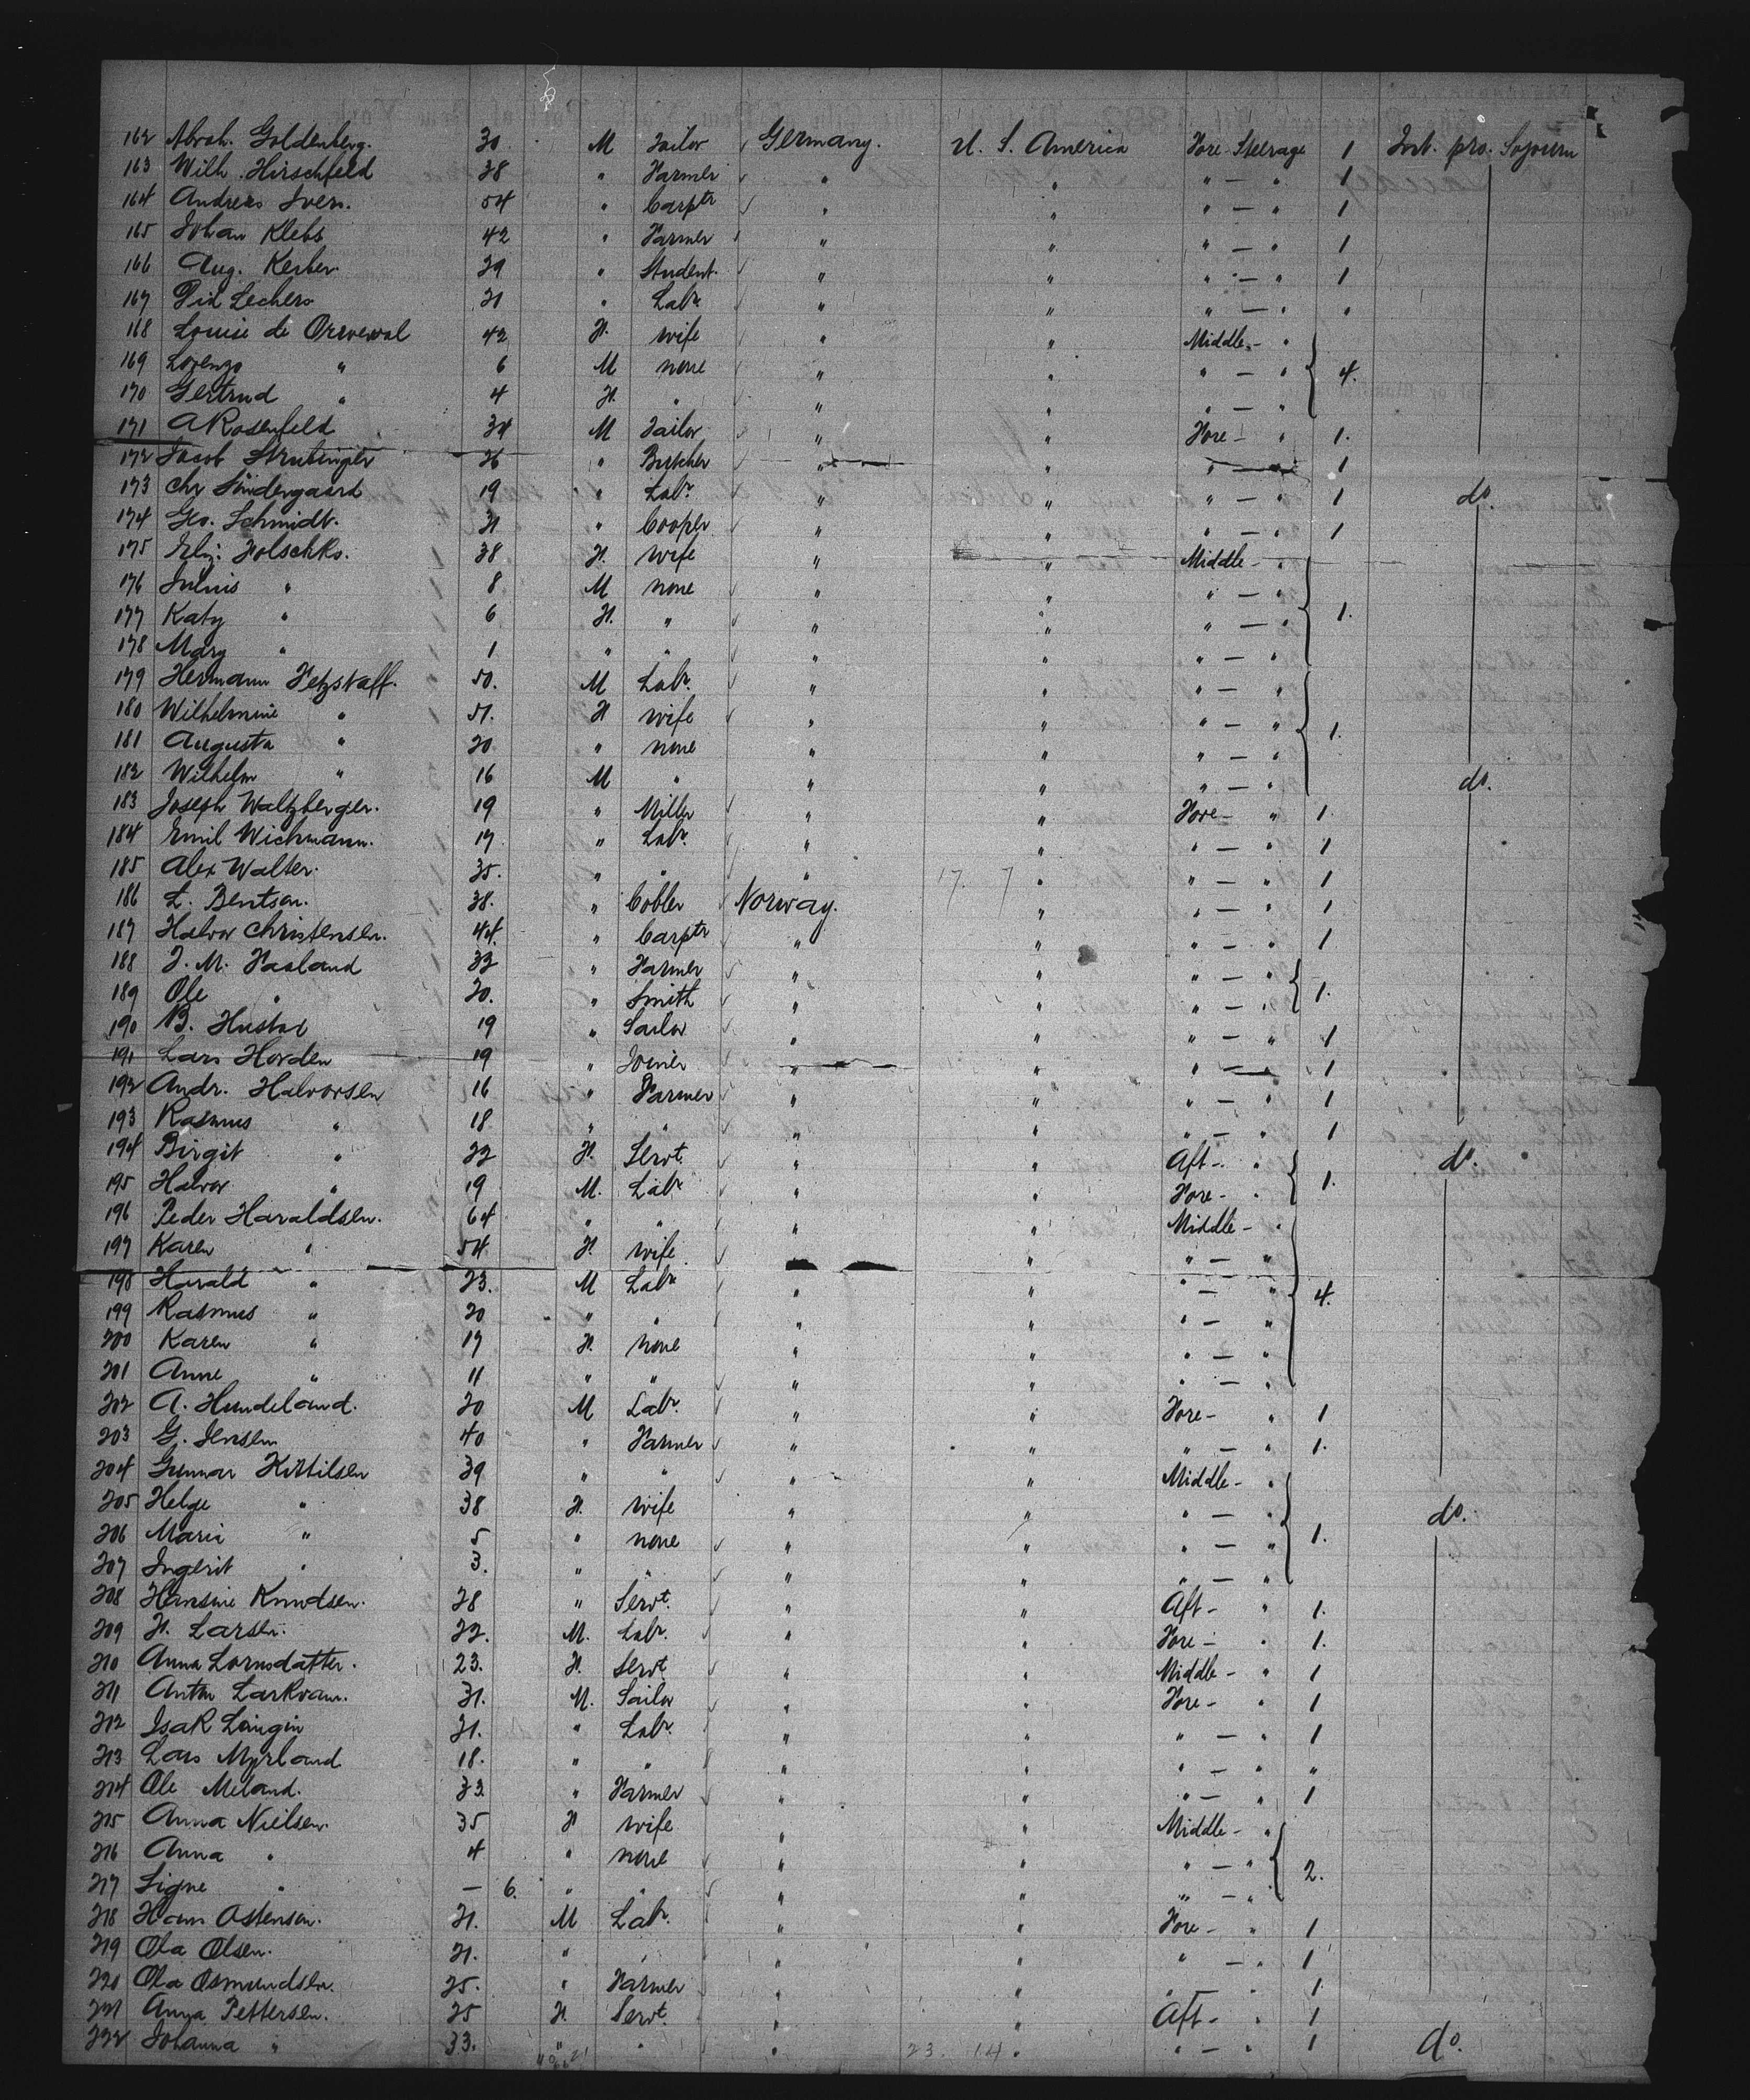 162 Abrah. Goldenberg. 30 M Tailor Germany. U. S. America Fore Steerage 1 Int. pro. Sojourn
163 Wilh. Hirschfeld 38 " Farmer " " " — " 1
164 Andreas Iven. 54 " Carptr " " " — " 1
165 Johan Klebs 42 " Farmer " " " — " 1
166 Aug. Kerber. 29 " Student. " " " — " 1
167 Lechers 21 " Labr. " " " — " "
168 Louise de 42 F. wife " " Middle - "
169 Lorenzo " 6 M none " " " — " 4.
170 Gertrud " 4 F. " " " " — "
171 A Rosenfeld 34 M Tailor " " Fore - " 1.
172 Jacob Strubinger 26 " Butcher " " " — " 1
173 Chr Söndergaard 19 " Labr. " " " — " 1 do.
174 Geo. Schmidt. 31 " Cooper " " " — " 1
175 Eliz. Folschks. 38 F. wife " " Middle - "
176 Julius " 8 M none " " " — "
177 Katy " 6 F. " " " " — " 1.
178 Mary " 1 " " " " " — "
179 Hermann Fetzstaff. 50. M Labr. " " " — "
180 Wilhelmine " 51. F wife " " " — "
181 Augusta " 20 " none " " " — " 1.
182 Wilhelm " 16 M " " " " — " do.
183 Joseph Waltzberger. 19 " Miller " " Fore - " 1.
184 Emil Wichmann. 17 " Labr. " " " — " 1
185 Alex Walter. 35. " " " 17. 7 " " — " 1
186 L. Bentson. 38. " Cobler Norway. " " — " 1
187 Halvor Christensen. 44. " Carptr " " " — " 1
188 J. M. Fasland 32 " Farmer " " " — "
189 Ole " 20. " Smith " " " — " 1.
190 B. Hustad 19 " Sailor " " " — " 1
191 Lars Horden 19 " Joiner " " " — " 1
192 Andr. Halvorsen 16 " Farmer " " " — " 1
193 Rasmus " 18. " " " " " — " 1
194 Birgit " 22 F. Servt. " " Aft - " do.
195 Halvor " 19 M. Labr " " Fore - " 1.
196 Peder Haraldsen. 64 " " " " Middle - "
197 Karen " 54 F. wife " " " — "
198 Harald " 23. M Labr " " " — " 4.
199 Rasmus " 20 " " " " " — "
200 Karen " 17 F. none " " " — "
201 Anne " 11 " " " " " — "
202 A. Hundeland. 20 M Labr. " " Fore - " 1
203 G. Jensen 40 " Farmer " " " — " 1.
204 Gunnar Kittilsen 39 " " " " Middle - "
205 Helge " 38 F. wife " " " — " do.
206 Marie " 5 " none " " " — " 1.
207 Ingerit " 3. " " " " " — "
208 Hansine Knudsen. 28 " Servt. " " Aft - " 1.
209 H. Larsen. 22. M. Labr. " " Fore - " 1.
210 Anna Larnsdatter. 23. F. Servt " " Middle - " 1
211 Anton Larkvam. 31. M. Sailor " " Fore - " 1
212 Isak Langin 21. " Labr. " " " — " 1
213 Lars Myrland 18. " " " " " — " "
214 Ole Meland. 32 " Farmer " " " — " 1
215 Anna Nielsen. 35 F wife " " Middle - "
216 Anna " 4 " none " " " — " 2.
217 Signe " — 6. " " " " " — "
218 Hans Ostensen. 21. M Labr. " " Fore - " 1
219 Ola Olsen. 21. " " " " " — " 1
220 Ola Osmundsen. 25. " Farmer " " " — " 1
221 Anna Pettersen. 25 F. Servt. " " Aft - " 1
222 Johanna " 33. " " " 23. 14. " " — " 1 do.